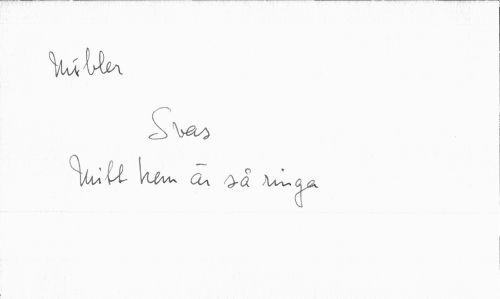 Möbler
Svas
Mitt hem är så ringa